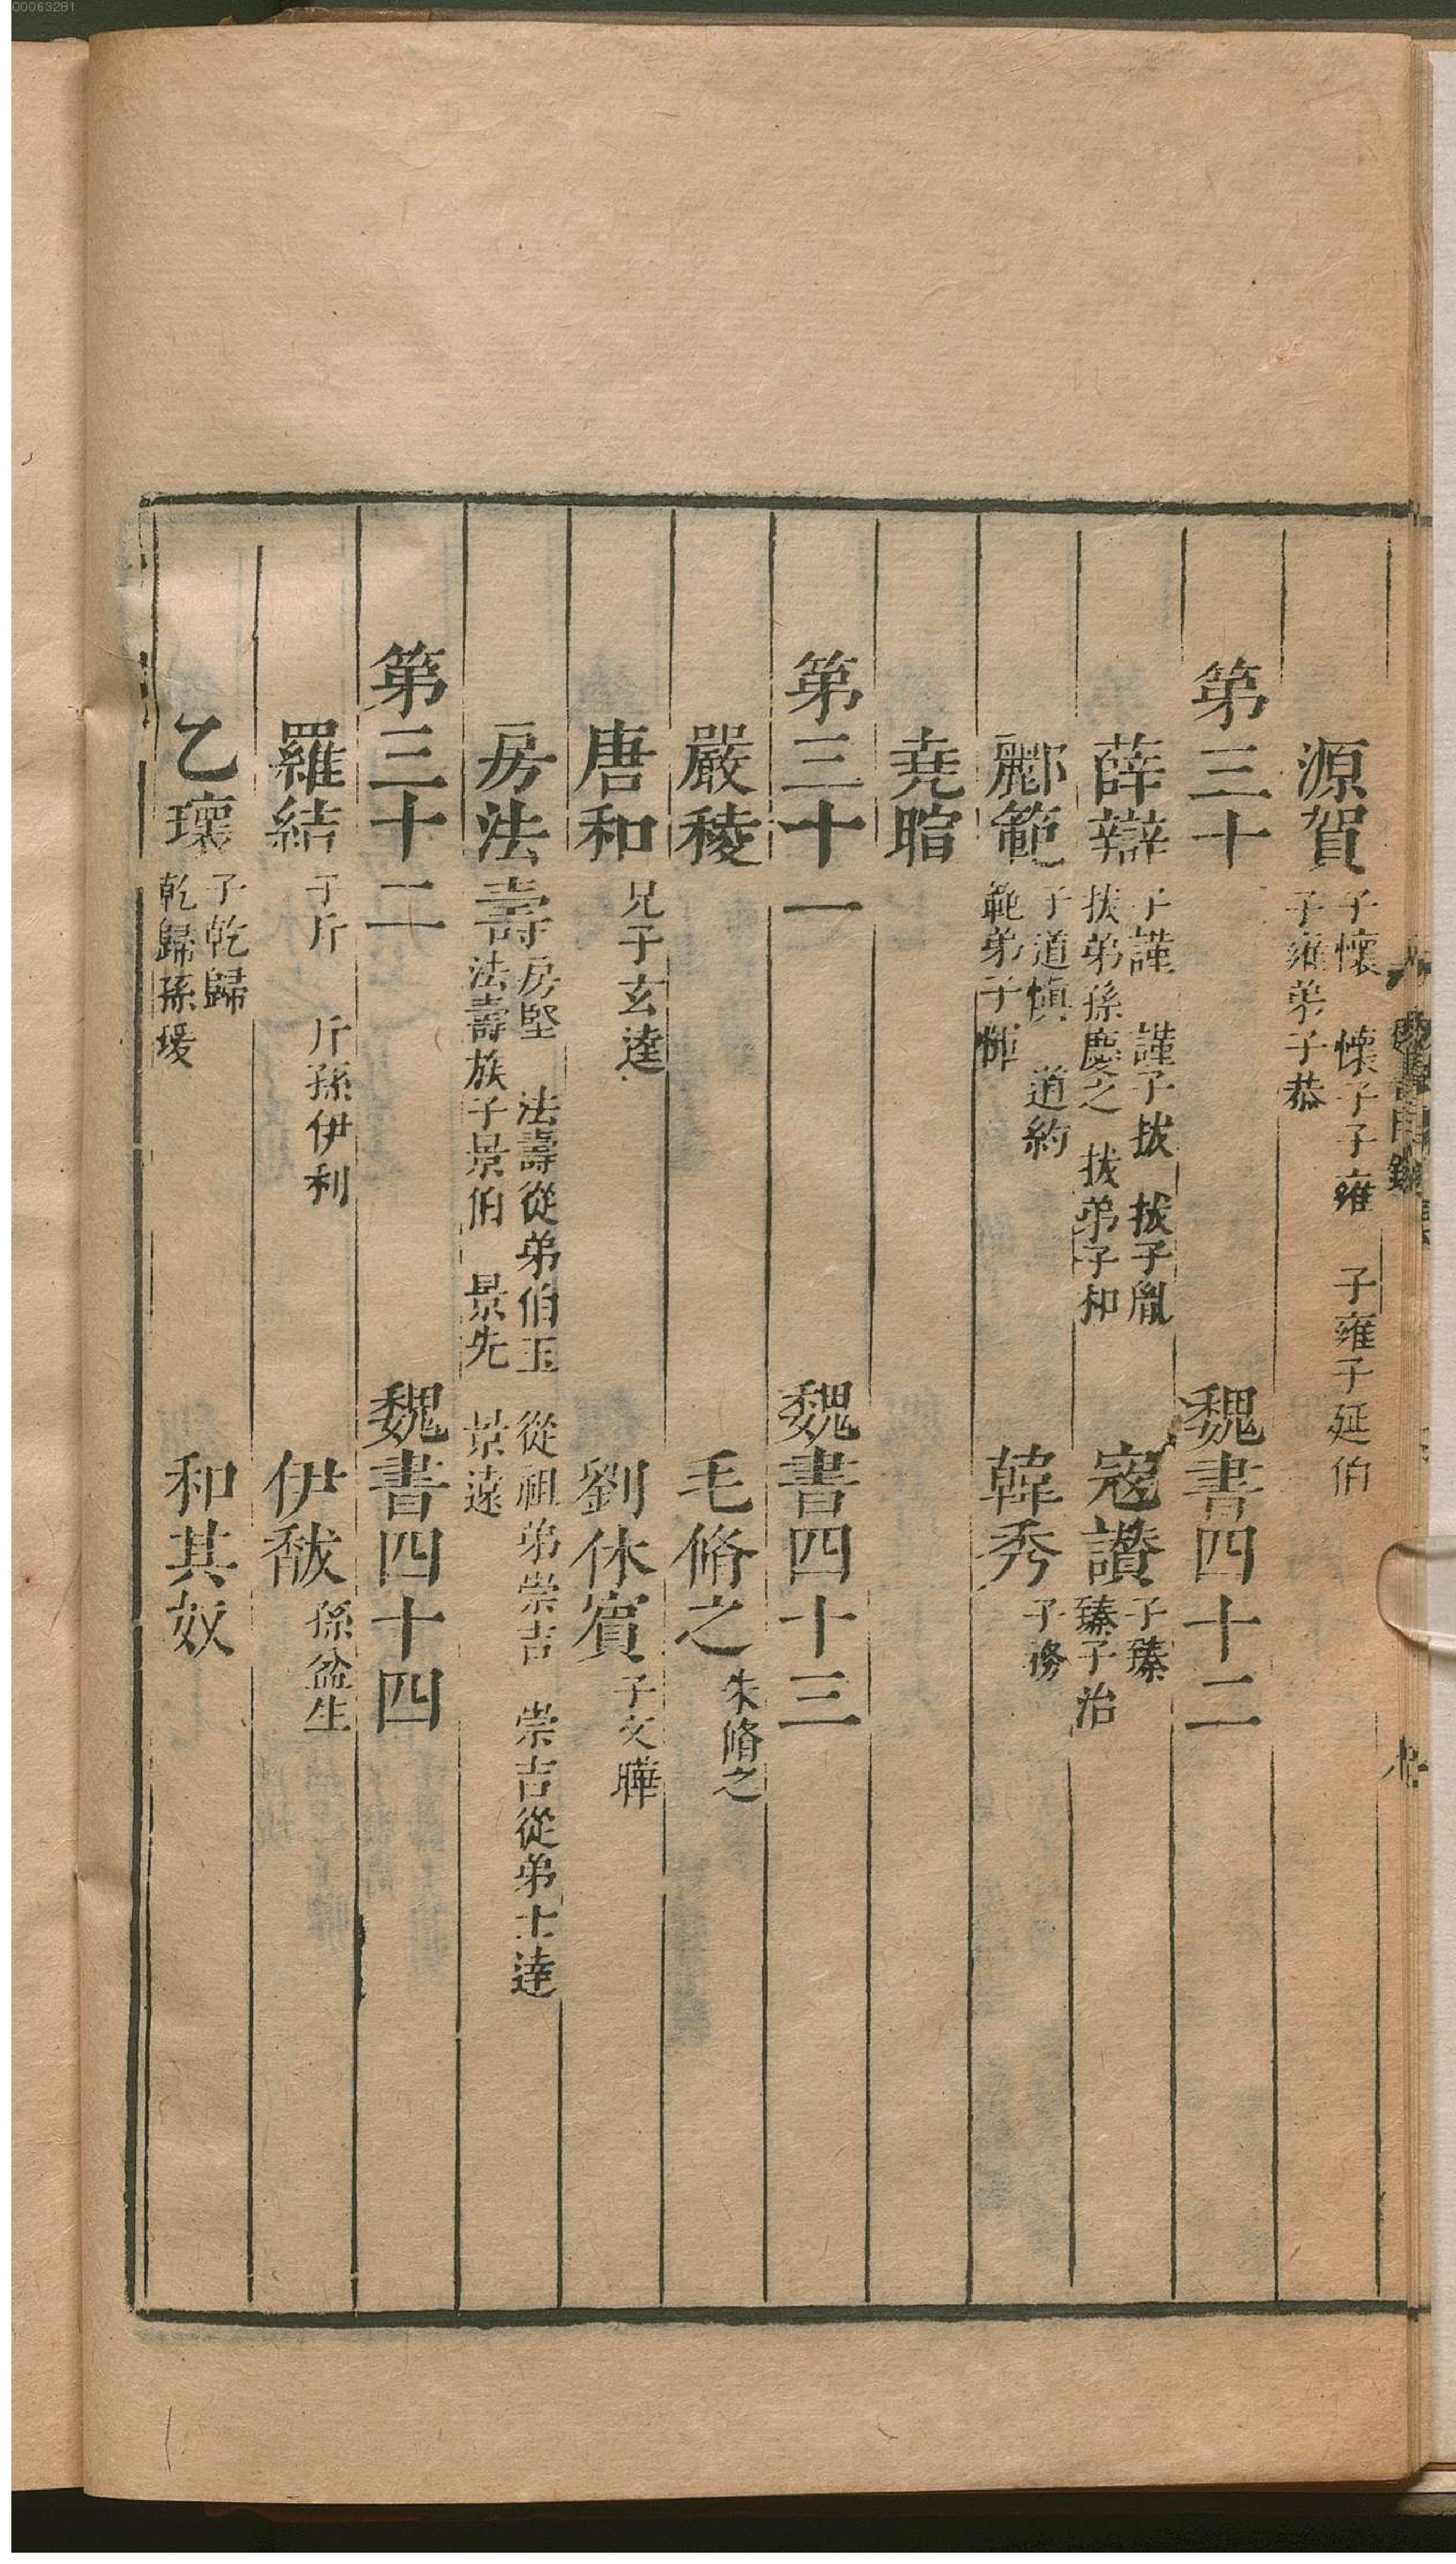 00063281
源賀 子懷 懷子子雍 子雍子延伯
子雍弟子恭
第三十 魏書四十二
薛辯 子謹 謹子拔 拔子胤
拔弟孫慶之 拔弟子和
寇讚 子臻
臻子治
酈範 子道愼 道約
範弟子惲
韓秀 子務
堯暄
第三十一 魏書四十三
嚴稜 毛脩之 朱脩之
唐和 兄子玄達 劉休賓 子文曄
房法壽 房堅 法壽從弟伯玉 從祖弟崇吉 崇吉從弟士達
法壽族子景伯 景先 景遠
第三十二 魏書四十四
羅結 子斤 斤孫伊利 伊馛 孫盆生
乙瓌 子乾歸
乾歸孫瑗
和其奴